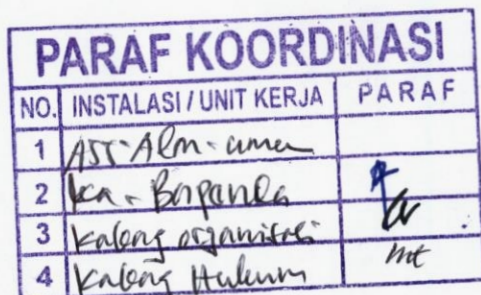 PARAF KOORDINASI
NO. INSTALASI / UNIT KERJA PARAF
1 Ass. Adm. umum
2 Ka. Bappeda
3 Kabag organisasi
4 Kabag Hukum